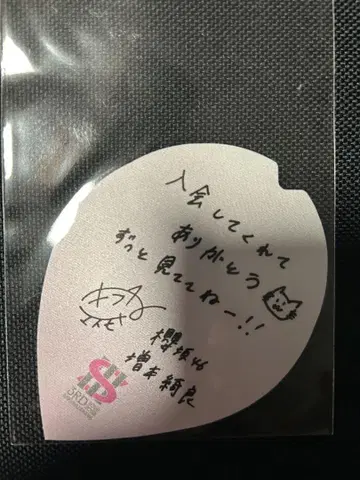 入会してくれて
ありがとう
ずっと見ててねー!!
櫻坂46
増本綺良
S
3RD